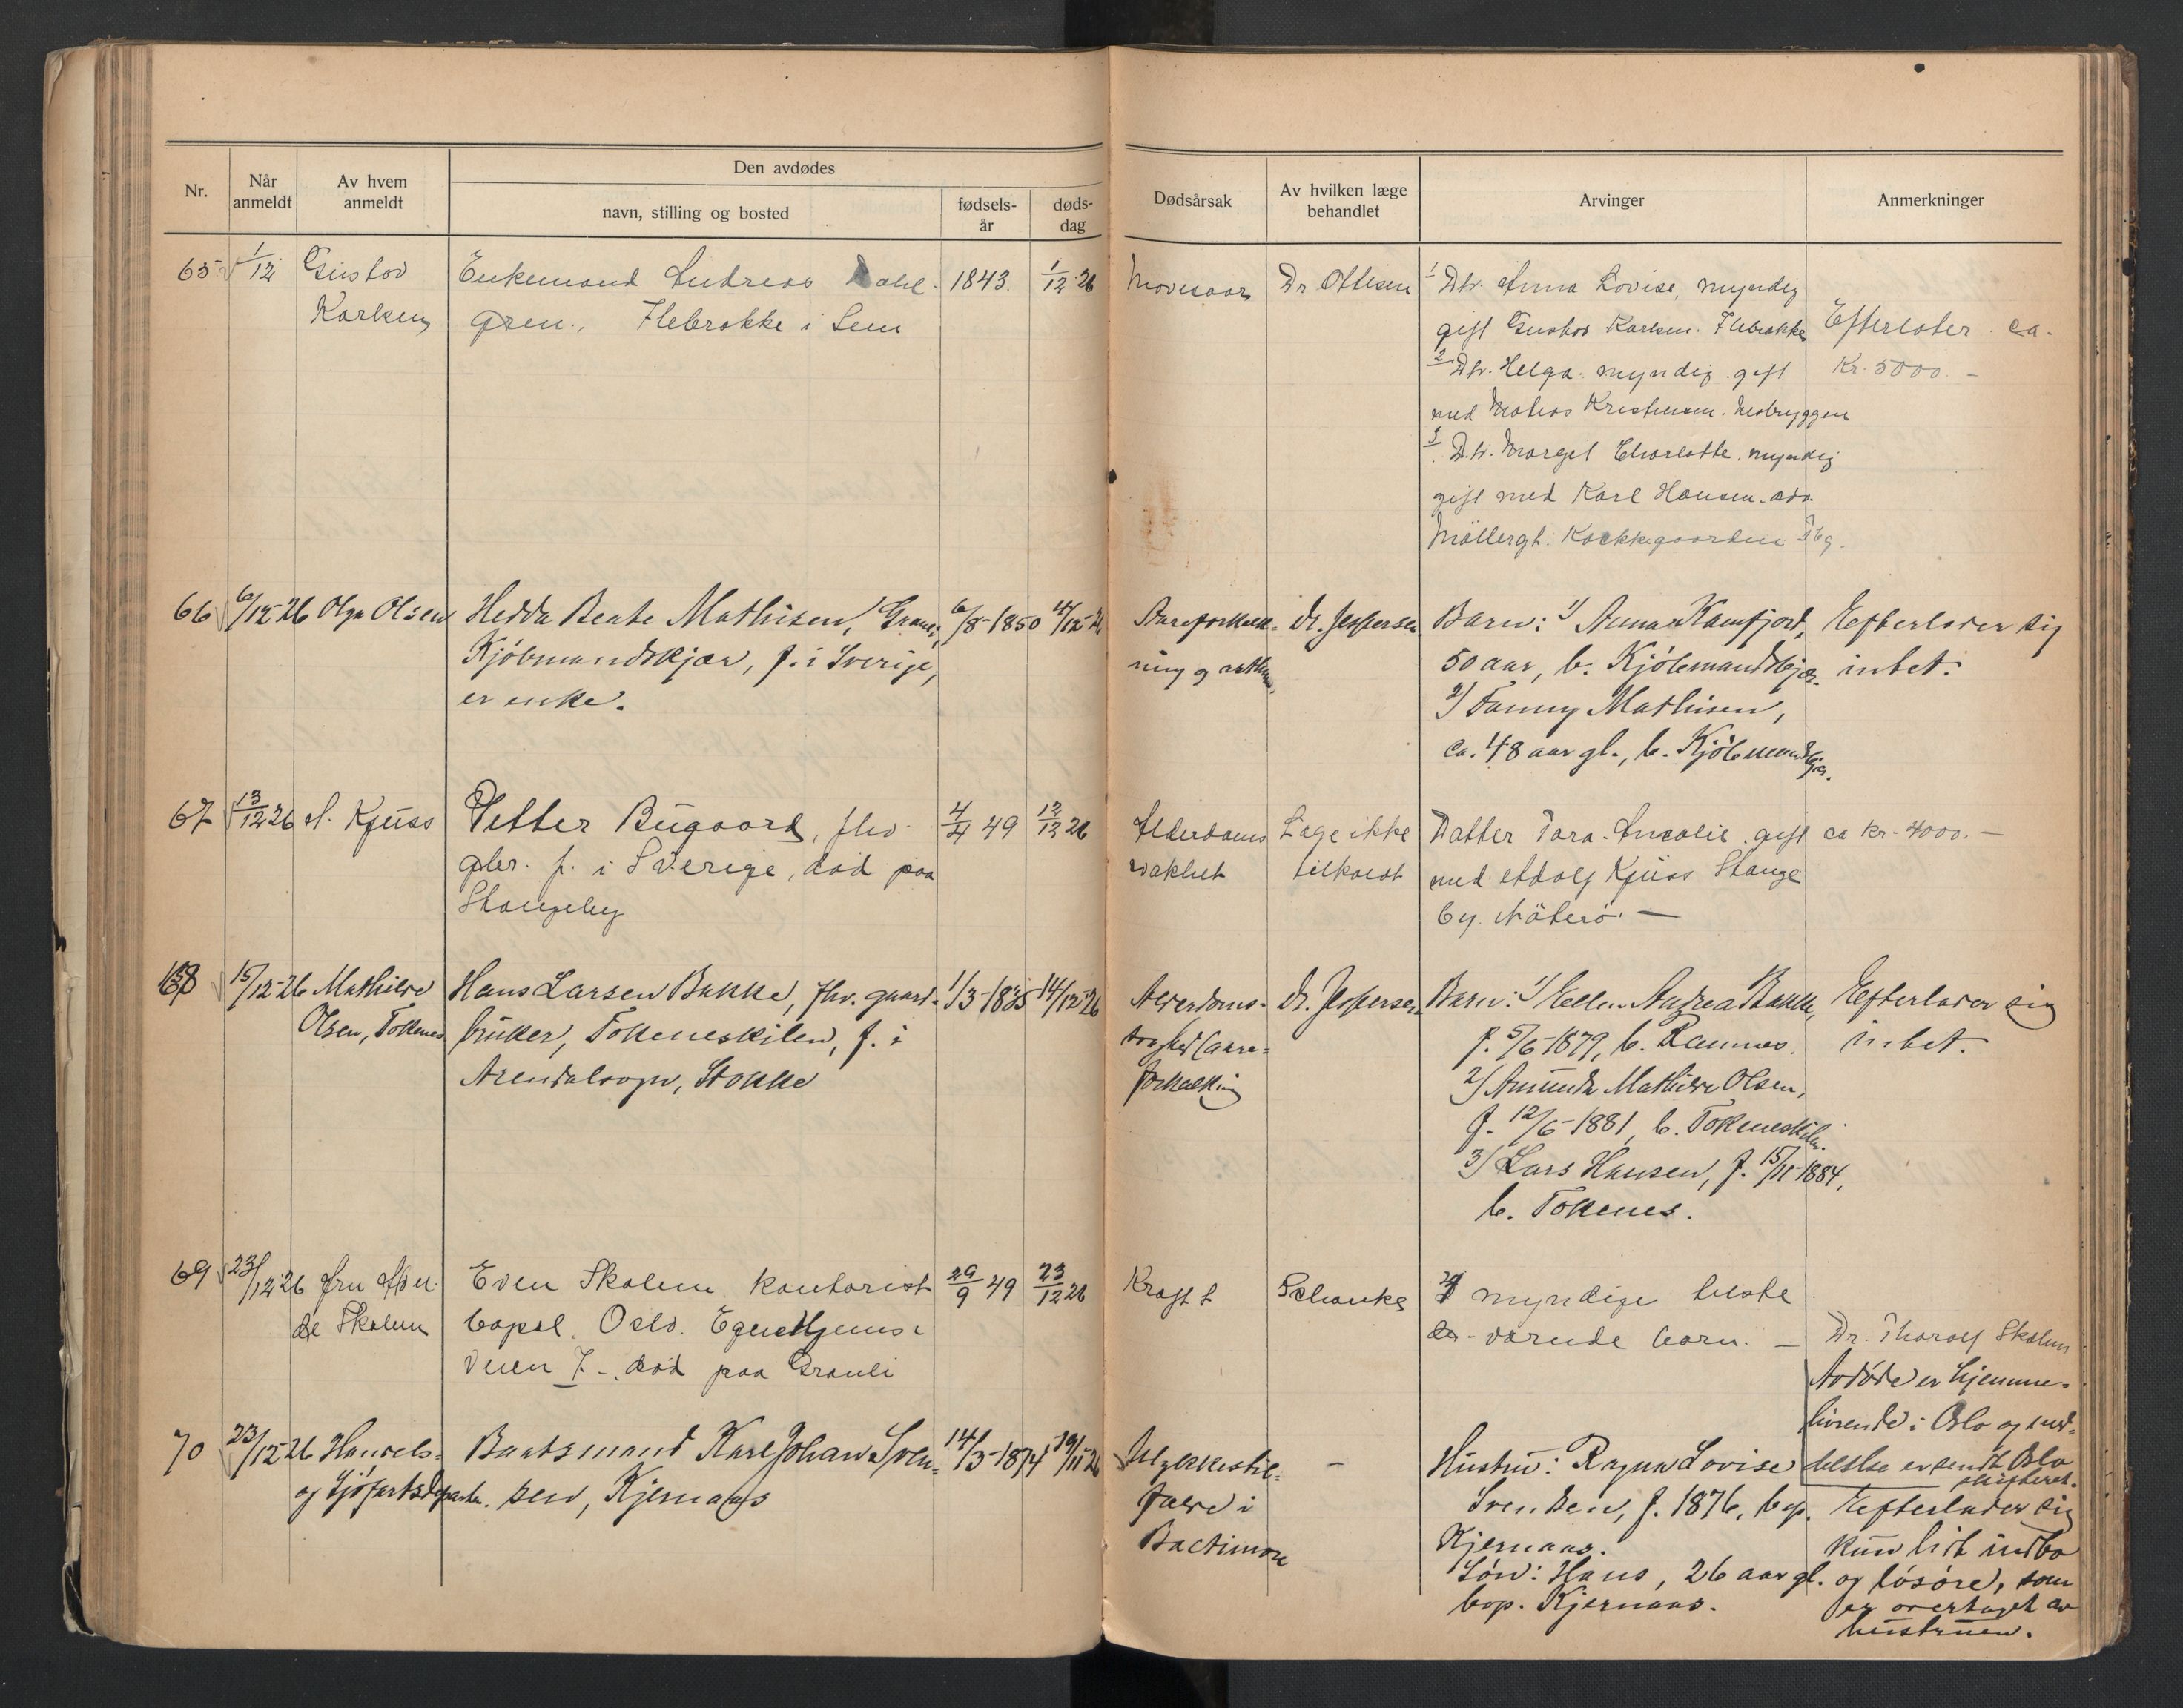 Nr.
Når anmeldt
Av hvem anmeldt
Den avdødes
navn, stilling og bosted
fødsels-år
døds-dag
Dødsårsak
Av hvilken læge behandlet
Arvinger
Anmerkninger
65 1/12 Gustav Enkemand Andreas Dahl- 1843. 1/12 26 Mavesaar Dr Ottesen 1 Dtr. Anna Lovise, myndig
Karlsen gren., Flebrække i Sem gift Gustav Karlsen. Flebrække Efterlater ca.
2 Dtr. Helga. myndig. gift Kr. 5000. -
med Matias Kristensen. Nesbryggen
3 Dtr. Margit Charlotte. myndig
gift med Karl Hansen. adr.
Møllergt. Kackkegaarden Tbg.
66 6/12-26 Olga Olsen Hedda Beate Mathisen, 6/8-1850 4/12-26 Aareforkalk- dr. Jespersen Barn: 1) Anna Kamfjord, Efterlader sig
Kjøbmandskjær, f. i Sverige, ning og asthma. 50 aar, b. Kjøbmandskjær. intet.
er enke. 2) Fanny Mathisen,
ca. 48 aar gl., b. Kjøbmandskjær.
67 13/12 26 A. Kjuss Petter Bugaard, fhv. 4/4 49 12/12 26 Alderdoms Læge ikke Datter Tora Amalie. gift ca kr. 4000. -
gbr. f. i Sverige, död paa svakhet tilkaldt med Adolf Kjuss Stange
Stangeby by. Nöterö. -
68 15/12-26 Mathilde Hans Larsen Bakke, fhv. gaard- 1/3-1835 14/12-26 Alderdoms- dr. Jespersen Barn: 1) Ellen Andrea Bakke, Efterlader sig
Olsen, Tokenes bruker, Tokeneskilen, f. i f. 5/6-1879, b. Ramnes. intet.
Arendalsogn, Stokke forkalking 2) Amunda Mathilde Olsen,
f. 12/6-1881, b. Tokeneskilen.
3) Lars Hansen, f. 15/11-1884,
b. Tokenes.
69 23/12 26 fru Even Skolem kontorist 29/9 49 23/12 26 Kræft Schanke myndige tilste
Skolem bopæl. Oslo. Egnehjems- værende barn. - Dr. Thoralf Skolem
veien 7 -. död paa Granli Avdøde er hjemme-
hørende i Oslo og med-
70 23/12 26 Handels- Baatsmand Karl Johan Sven- 14/3-1874 19/11-26 Ulykkestil- - Hustru: Ragna Lovise delelse er sendt Oslo
skifteret.
og Sjøfartsdepartm. sen, Kjernaas fælde i Svendsen, f. 1876, bop. Efterlader sig
Baltimore Kjernaas. kun lidt indbo
Søn: Hans, 26 aar gl. og løsøre, som
bop. Kjernaas. er overtaget av
hustruen.